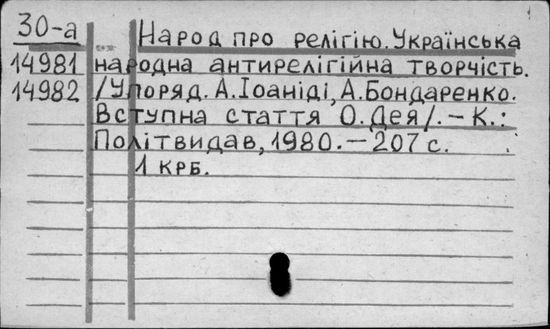 30-а Народ про релігію. Українська
14981 народна антирелігійна творчість.
14982 /Упоряд. А.Іоаніді, А.Бондаренко.
Вступна стаття О.Дея/. – К.:
Політвидав, 1980. – 207 с.
1 крб.